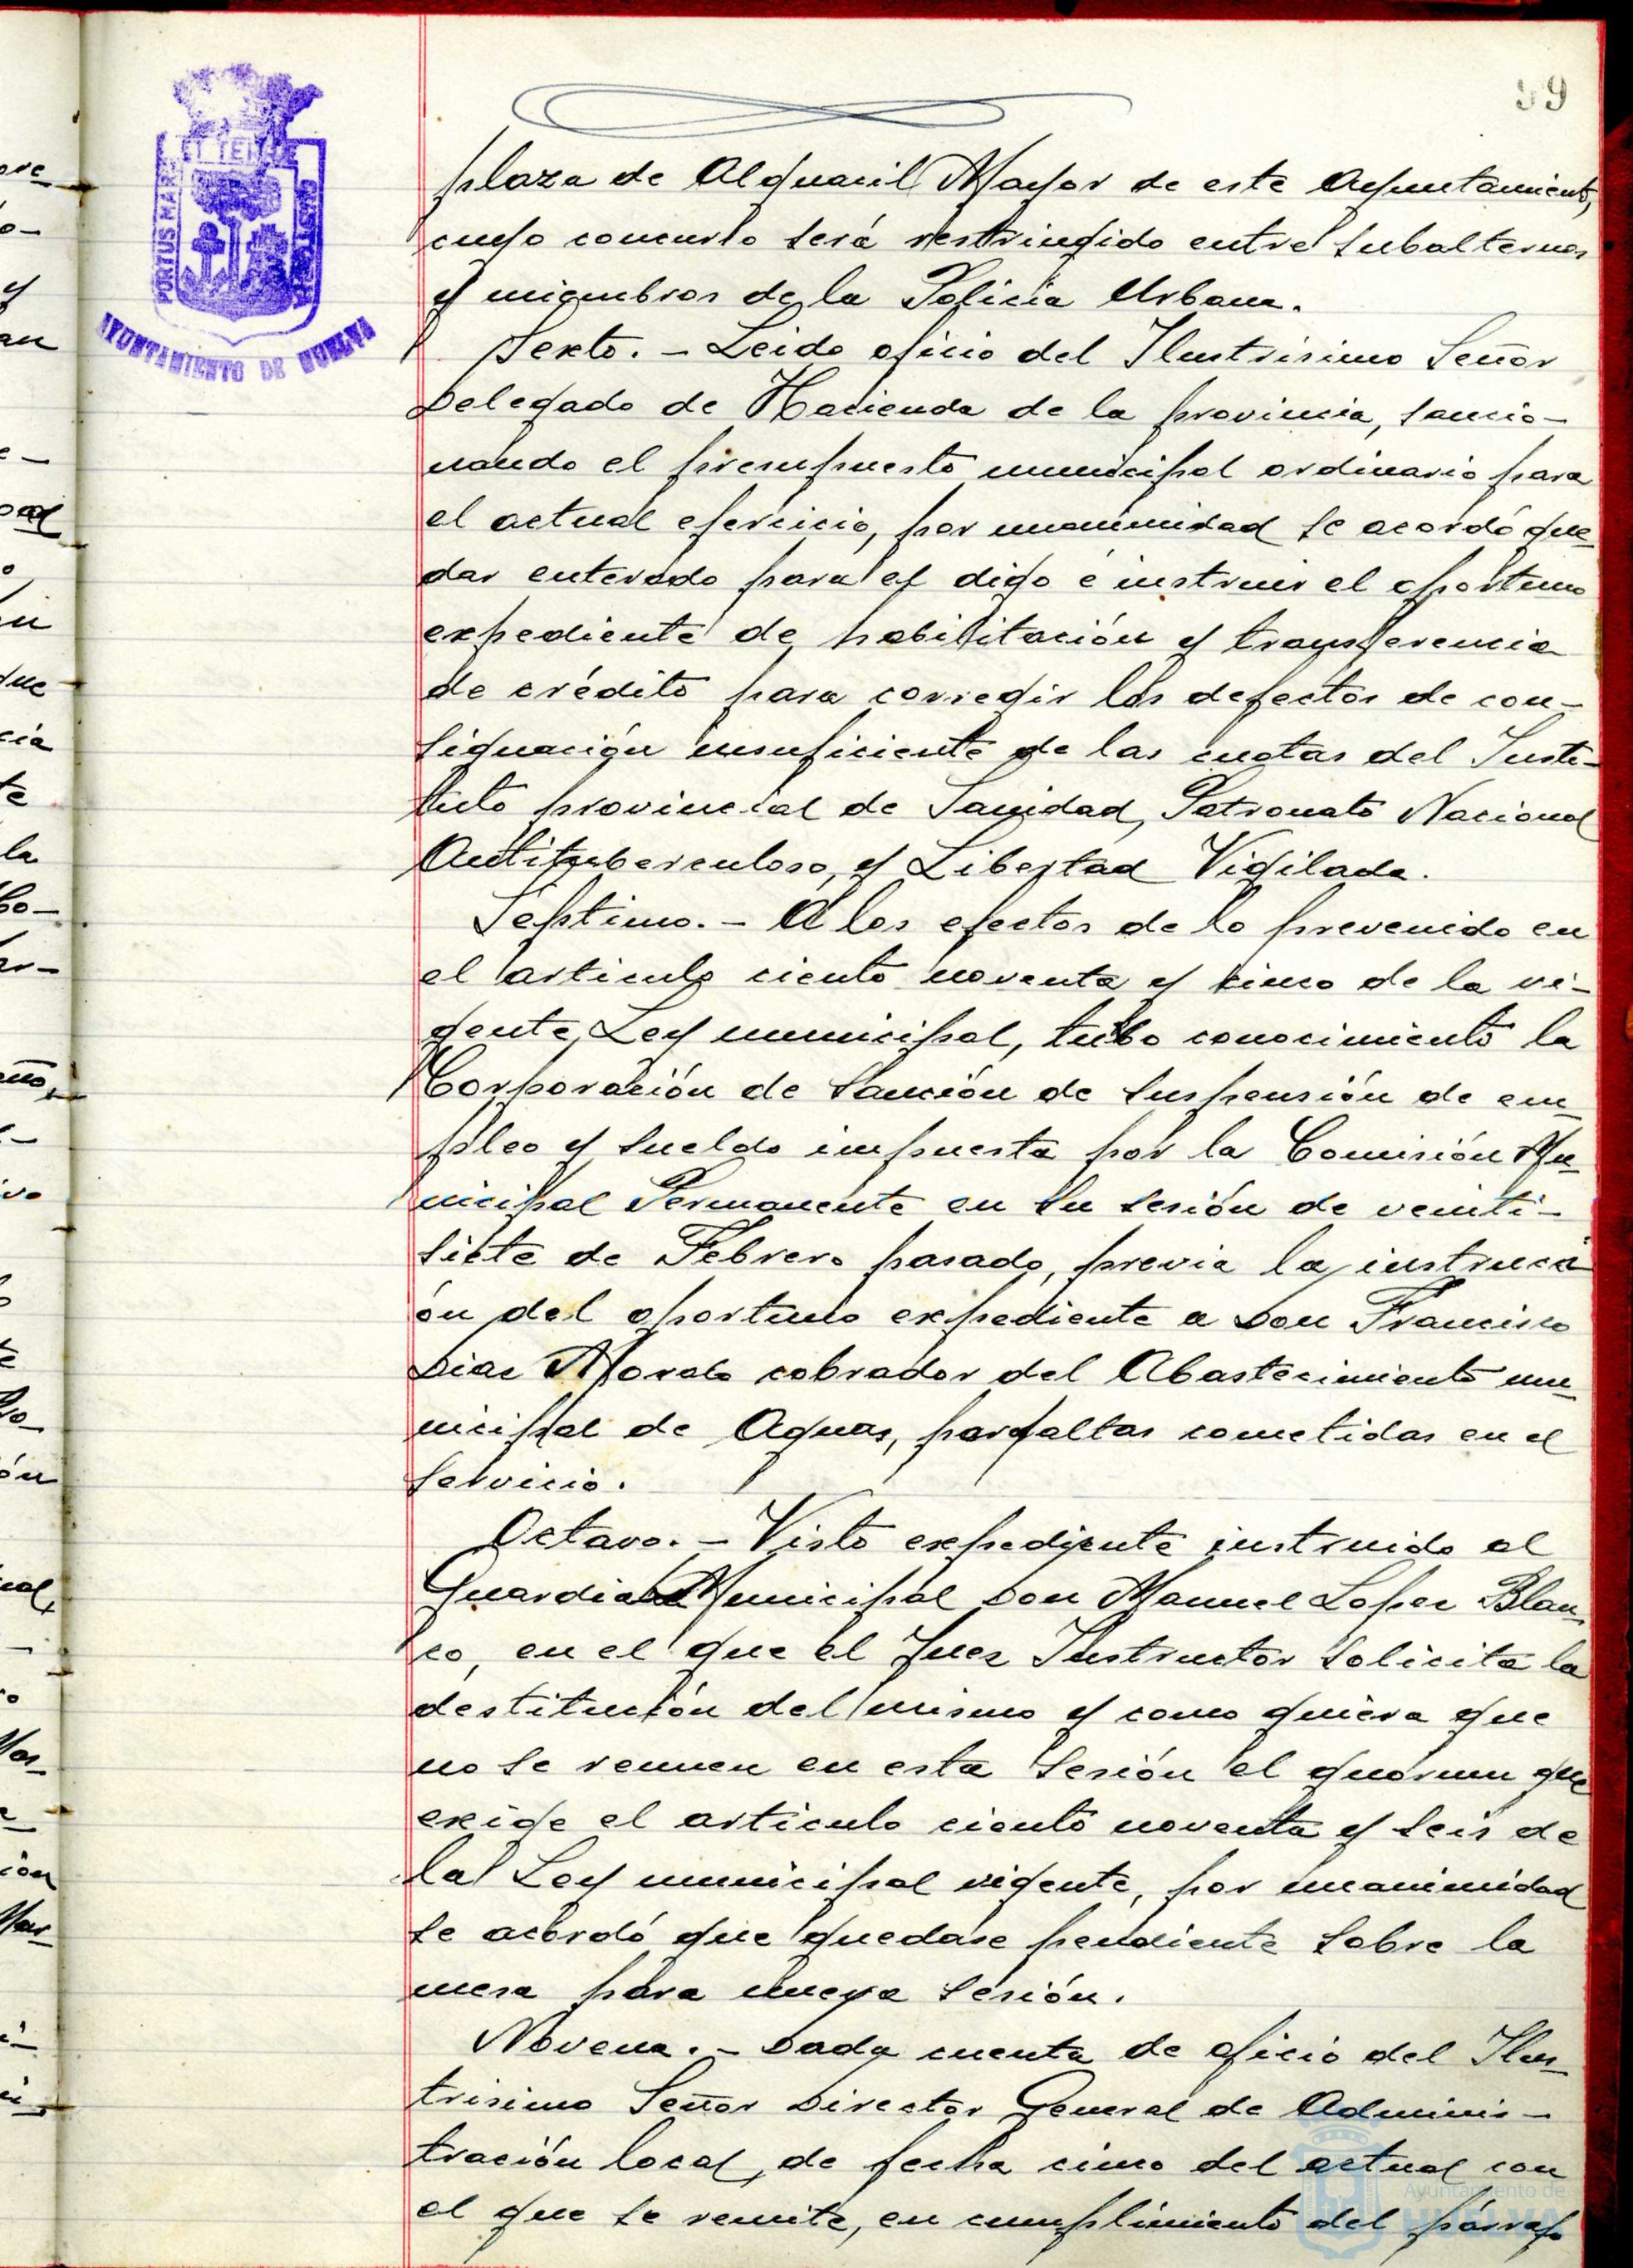 59
plaza de Alguacil Mayor de este Ayuntamiento,
cuyo concurso será restringido entre subalternos
y miembros de la Policia Urbana.
Sexto. - Leido oficio del Ilustrisimo Señor
Delegado de Hacienda de la provincia, sancio-
nando el presupuesto municipal ordinario para
el actual ejercicio, por unanimidad se acordó que-
dar enterado para el digo é instruir el oportuno
expediente de habilitación y transferencia
de crédito para corregir los defectos de con-
signación insuficiente de las cuotas del Insti-
tuto provincial de Sanidad, Patronato Nacional
Antituberculoso, y Libertad Vigilada.
Septimo. - A los efectos de lo prevenido en
el articulo ciento noventa y cinco de la vi-
gente Ley municipal, tubo conocimiento la
Corporación de sanción de suspensión de em-
pleo y sueldo impuesta por la Comisión Mu-
nicipal Permanente en su sesión de veinti-
siete de Febrero pasado, previa la instrucci-
ón del oportuno expediente a Don Francisco
Diaz cobrador del Abastecimiento mu-
nicipal de Aguas, por faltas cometidas en el
servicio.
Octavo. - Visto expediente instruido al
Guardia Municipal Don Manuel Lopez Blan-
co, en el que el Juez Instructor solicita la
destitución del mismo y como quiera que
no se reunen en esta sesión el quorum que
exige el articulo ciento noventa y seis de
la Ley municipal vigente, por unanimidad
se acordó que quedase pendiente sobre la
mesa para nueva sesión.
Novena. - Dada cuenta de oficio del Ilus-
trisimo Señor Director General de Adminis-
tración local, de fecha cinco del actual con
el que se remite, en cumplimiento del párrafo
PORTUS MARIS
ET TERRAE
CUSTODIA
AYUNTAMIENTO DE HUELVA
Ayuntamiento de
HUELVA